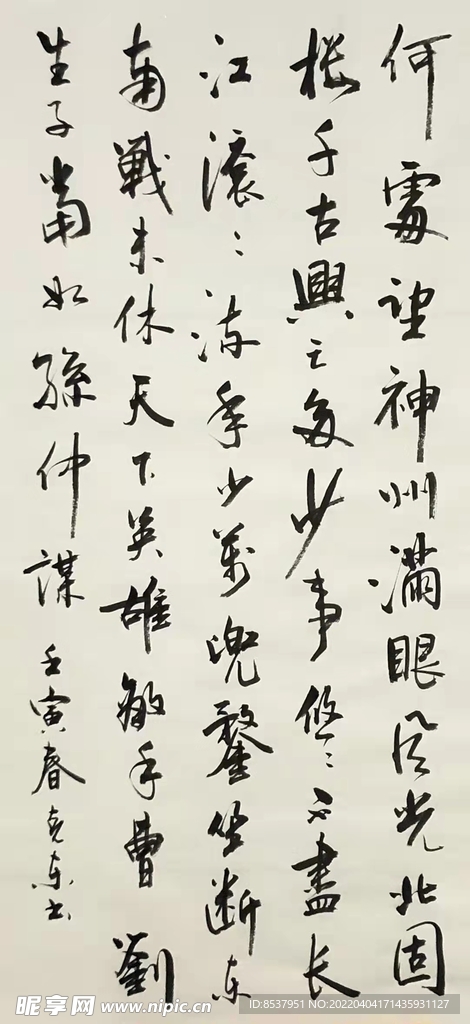 何處望神州滿眼风光北固
樓千古興亡多少事悠〻不盡長
江滾〻流年少萬兜鍪坐斷东
南戰未休天下英雄敵手曹劉
生子當如孫仲謀 壬寅春克东书
昵享网 www.nipic.cn
ID:8537951 NO:20220404171435931127